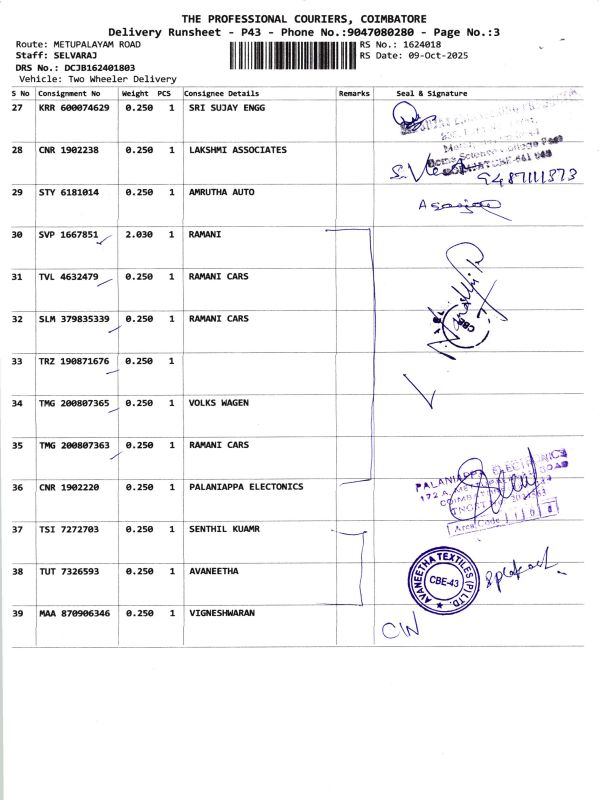 THE PROFESSIONAL COURIERS, COIMBATORE
Delivery Runsheet - P43 - Phone No.:9047080280 - Page No.:3
Route: METUPALAYAM ROAD RS No.: 1624018
Staff: SELVARAJ RS Date: 09-Oct-2025
DRS No.: DCJB162401803
Vehicle: Two Wheeler Delivery
S No Consignment No Weight PCS Consignee Details Remarks Seal & Signature
27 KRR 600074629 0.250 1 SRI SUJAY ENGG
28 CNR 1902238 0.250 1 LAKSHMI ASSOCIATES
9487111373
29 STY 6181014 0.250 1 AMRUTHA AUTO
30 SVP 1667851 2.030 1 RAMANI
31 TVL 4632479 0.250 1 RAMANI CARS
32 SLM 379835339 0.250 1 RAMANI CARS
CBE
33 TRZ 190871676 0.250 1
34 TMG 200807365 0.250 1 VOLKS WAGEN
35 TMG 200807363 0.250 1 RAMANI CARS
PALANIAPPA ELECTRONICS
36 CNR 1902220 0.250 1 PALANIAPPA ELECTONICS
Area Code
37 TSI 7272703 0.250 1 SENTHIL KUAMR
38 TUT 7326593 0.250 1 AVANEETHA
AVANEETHA TEXTILES (P) LTD.
CBE-43
39 MAA 870906346 0.250 1 VIGNESHWARAN